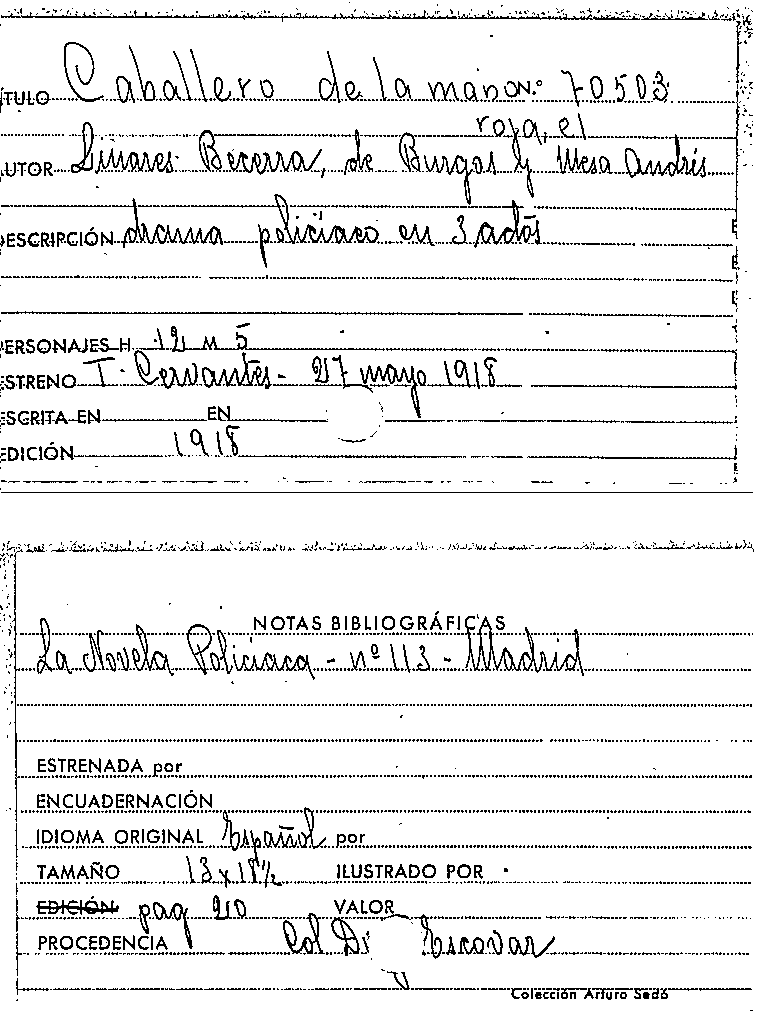 TULO Caballero de la mano N.º 70503
roja, el
UTOR Linares Becerra, de Burgos y Mesa Andrés
ESCRIPCIÓN drama policíaco en 3 actos
ERSONAJES H 12 M 5
STRENO T. Cervantes - 27 mayo 1918
ESCRITA EN EN
EDICIÓN 1918
NOTAS BIBLIOGRÁFICAS
La Novela Policiaca - nº 113 - Madrid
ESTRENADA por
ENCUADERNACIÓN
IDIOMA ORIGINAL Español por
TAMAÑO 13 x 18½ ILUSTRADO POR
EDICIÓN pag 20 VALOR
PROCEDENCIA Col Escovar
Colección Arturo Sedó